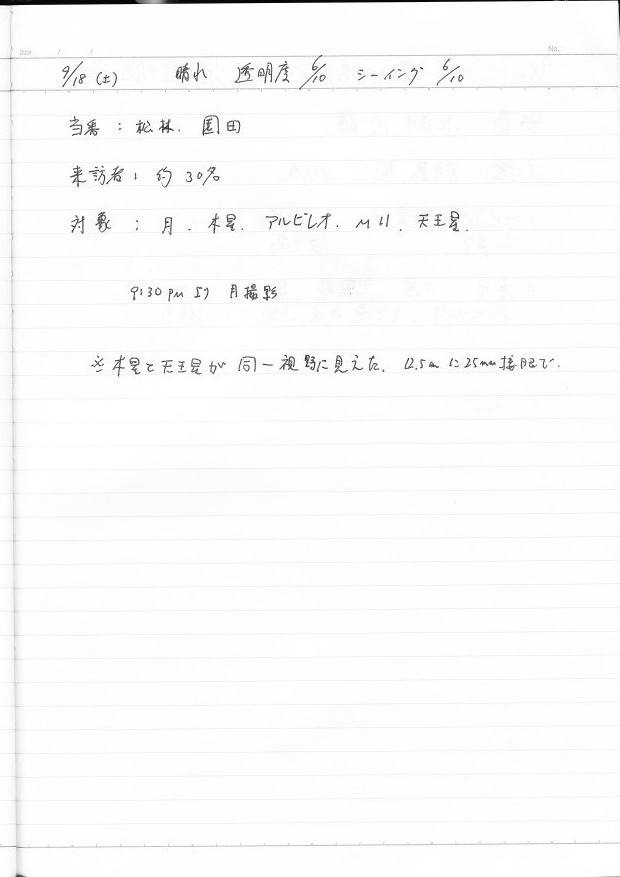 Date / / No.
9/18 (土) 晴れ 透明度 6/10 シーイング 6/10
当番 : 松林. 園田
来訪者 : 約 30名
対象 : 月. 木星. アルビレオ. M11. 天王星.
9:30 PM より 月撮影
※ 木星と天王星が 同一視野に見えた. 12.5cm に 25mm接眼で.